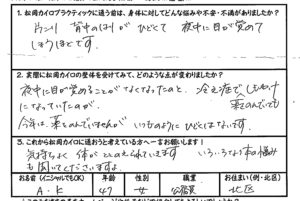 1. 松岡カイロプラクティックに通う前は、身体に対してどんな悩みや不安・不満がありましたか?
肩こり 背中のはりが ひどくて 夜中に目が覚めて
しまうほどです。
2. 実際に松岡カイロの整体を受けてみて、どのような点が変わりましたか?
夜中に目が覚めることがなくなったのと、冷え症でしもやけ
になっていたのが、 薬をのんでいても
今年は薬をのんでいませんが いつものようにひどくはないです。
3. これから松岡カイロに通おうと考えている方へ一言お願いします!
気持ちよく 体が ととのえられていきます いろいろな体の悩み
も聞いてくださいますよ。
お名前(イニシャルでもOK) 年齢 性別 職業 お住まい(例:北区)
A.K 47 女 公務員 北区